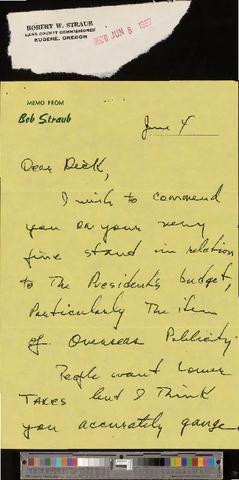 ROBERT W. STRAUB
LANE COUNTY COMMISSIONER
EUGENE, OREGON
REC'D JUN 6 1957
MEMO FROM
Bob Straub
June 4
Dear Dick,
I wish to commend
you on your very
fine stand in relation
to The President's budget,
Particularly The item
of Overseas Publicity.
People want Lower
TAXES but I Think
you accurately gauge